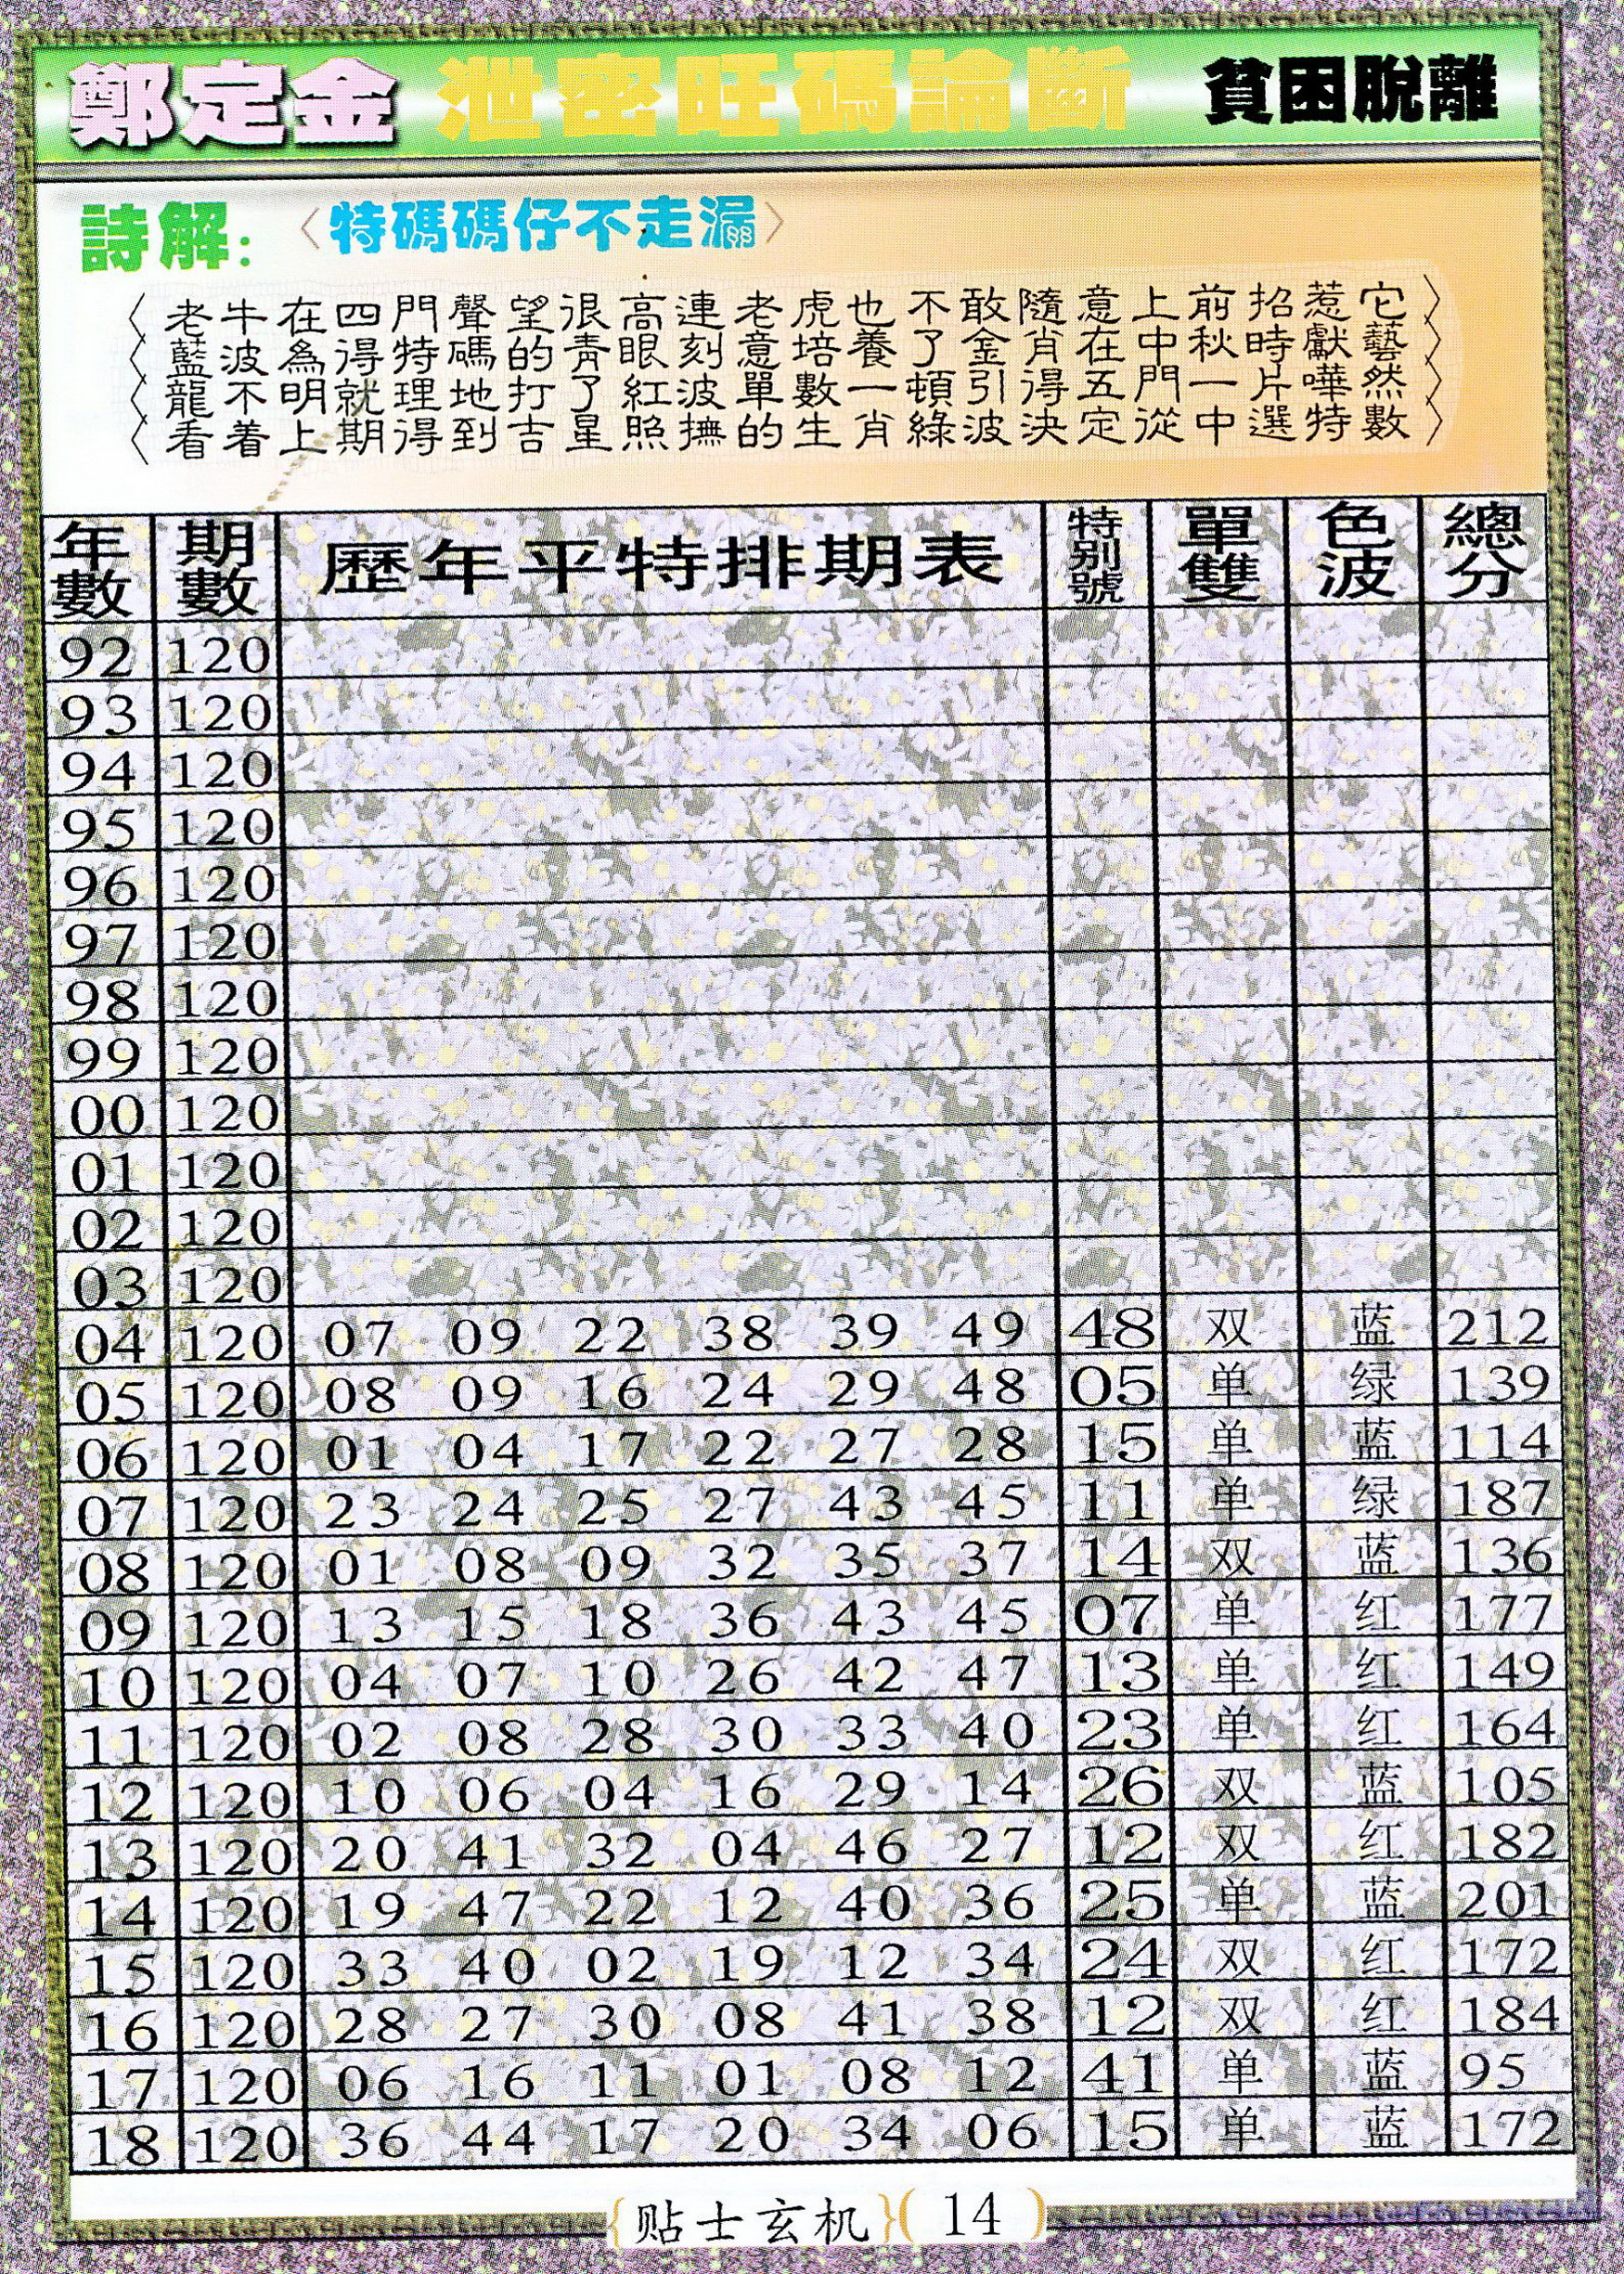 鄭定金 泄密旺碼論斷 貧困脫離
詩解: 〈特碼碼仔不走漏〉
〈老牛在四門聲望很高連老虎也不敢隨意上前招惹它〉
〈藍波為得特碼的青眼刻意培養了金肖在中秋時獻藝〉
〈龍不明就理地打了紅波單數一頓引得五門一片嘩然〉
〈看着上期得到吉星照撫的生肖綠波決定從中選特數〉
年數 期數 歷年平特排期表 特别號 單雙 色波 總分
92 120
93 120
94 120
95 120
96 120
97 120
98 120
99 120
00 120
01 120
02 120
03 120
04 120 07 09 22 38 39 49 48 双 蓝 212
05 120 08 09 16 24 29 48 05 单 绿 139
06 120 01 04 17 22 27 28 15 单 蓝 114
07 120 23 24 25 27 43 45 11 单 绿 187
08 120 01 08 09 32 35 37 14 双 蓝 136
09 120 13 15 18 36 43 45 07 单 红 177
10 120 04 07 10 26 42 47 13 单 红 149
11 120 02 08 28 30 33 40 23 单 红 164
12 120 10 06 04 16 29 14 26 双 蓝 105
13 120 20 41 32 04 46 27 12 双 红 182
14 120 19 47 22 12 40 36 25 单 蓝 201
15 120 33 40 02 19 12 34 24 双 红 172
16 120 28 27 30 08 41 38 12 双 红 184
17 120 06 16 11 01 08 12 41 单 蓝 95
18 120 36 44 17 20 34 06 15 单 蓝 172
{贴士玄机}(14)